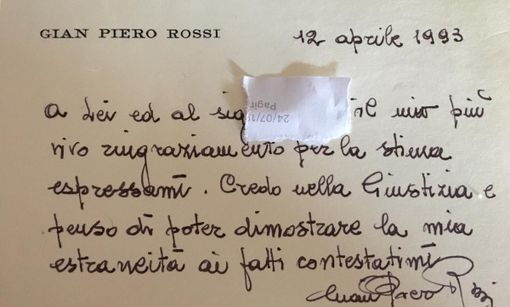 GIAN PIERO ROSSI
12 aprile 1993
24/07/1
Pagi
A Lei ed al sig il mio più
vivo ringraziamento per la stima
espressami. Credo nella Giustizia e
penso di poter dimostrare la mia
estraneità ai fatti contestatimi
Gian Piero Rossi